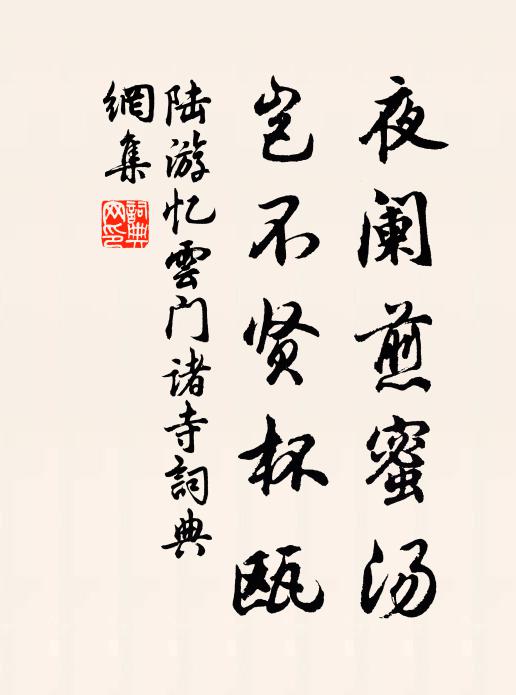 夜阑煎蜜汤
岂不贤杯瓯
陆游忆雲门诸寺詞典
網集
詞典網印